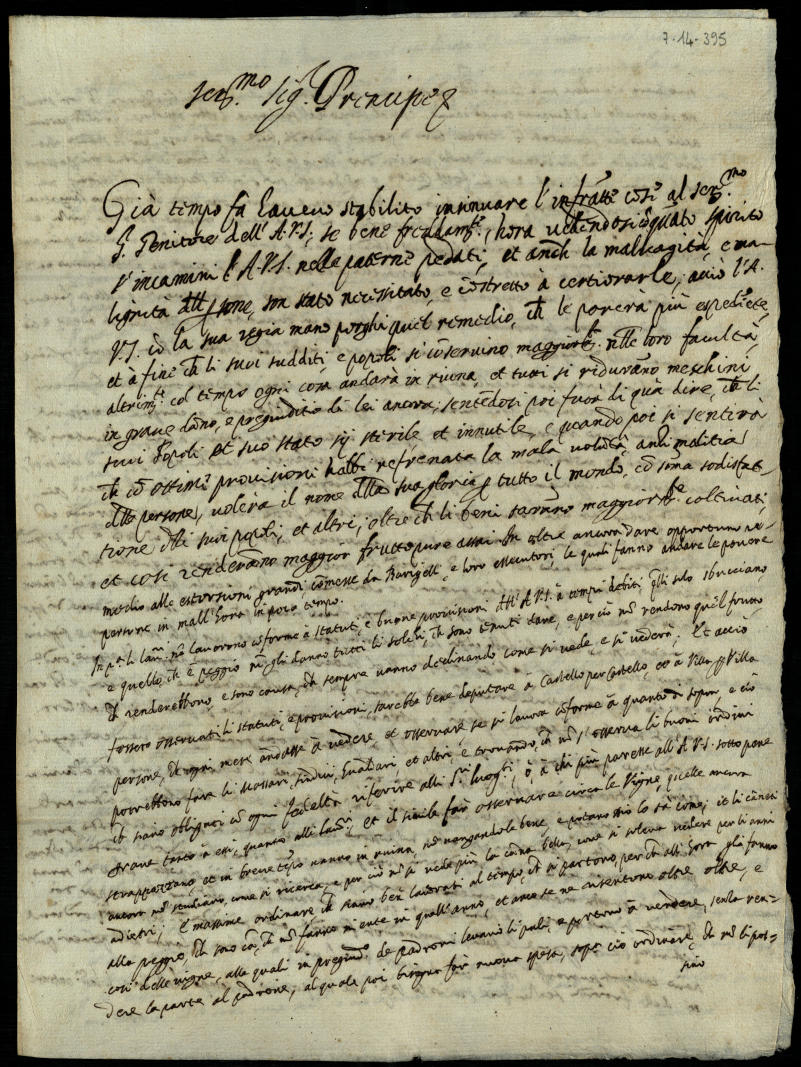 7-14-395
Ser.mo Sig.r Prencipe
Già tempo fa havevo stabilito insinuare l'infratte cose al ser.mo
S. Genitore dell'A.V.S. se bene freddam.te, hora vedendosi quato spirito
s'incamini l'A.V.S. nelle paterne pedati, et anch la malvagità, e ma-
lignità persone, son stato necissitato, e costretto à certiorarle, acciò l'A.
V.S. cõ la sua regia mano porghi quel remedio, ch le porerà più espediete,
et à fine ch li suoi sudditi, e popoli si coservino maggiorte nelle loro facultà,
altrimti col tempo ogni cosa andarà in ruina, et tutti si riduranno meschini
in grave dano, e pregiuditio di lei ancora, sentedosi poi fuora di quà dire, ch li
suoi Popoli et suo stato sij sterile et innutile, e quando poi si sentirà
ch cõ ottimi provisioni habbi refrenata la mala volotà, anzi malitia
delle persone, volerà il nome della sua gloria p tutto il mondo, cõ soma sodisfat-
tione delli suoi popoli, et altri; oltre ch li beni sarano maggiorte coltivati,
et così renderano maggior frutto pure assai. In oltre ancora dare opportuno ri-
medio alle estorsioni grandi comesse da Barigelli, e loro essecutori, le quali fanno andare le povere
persone in mall'hora in poco tempo.
In p.a li lavri nõ lavorono coforme à statuti, e buone provisioni dell'A.V.S. à tempi debiti, qlli solo sbucciano,
e quello, ch è peggio nõ gli danno tutti li solchi, ch sono tenuti dare, e per ciò nõ rendono quel frutto
ch renderebbono, e sono causa, ch sempre vanno declinando come si vede, e si vederà; Et acciò
fossero osservati li statuti, e provisioni, sarebbe bene deputare à Castello per Castello, et à Villa p Villa
persone, ch ogni mese andasse à vedere, et osservare se si lavora coforme à quanto di sopra, e ciò
potrebbono fare li Massari, sindici, Guardari et altri, e trovando, ch nõ s'osserva li buoni ordini
ch siano obligati cõ ogni fedeltà riferire alli S.ri luoghi, ò à chi più paresse all'A.V.S. sotto pene
grave tanto à essi, quanto alli lavri, et il simile far osservare circa le Vigne, quelle ancora
strappazzano et in breve tepo vanno in ruina, nõ vangandole bene, e potano ... lo sà come; et li caneti
ancora nõ studiano, come si ricerca, e per ciò nõ si vede più la cana bella, come si soleva vedere per li anni
adietri; E massime ordinare, ch siano ben lavorati al tempo, ch si partono, per ch all'hora gli fanno
alla peggio, ch sono cã, ch nõ fanno niente in quell'anno, et anco se ne risentono oltre oltre, e
così delle vigne, alle quali in pregiudo de padroni levano li pali, e portono à vendere, senza ren-
dere la parte al padrone, al quale poi bisogna far nuova spesa, sopr ciò ordinare, ch nõ li pos-
sino